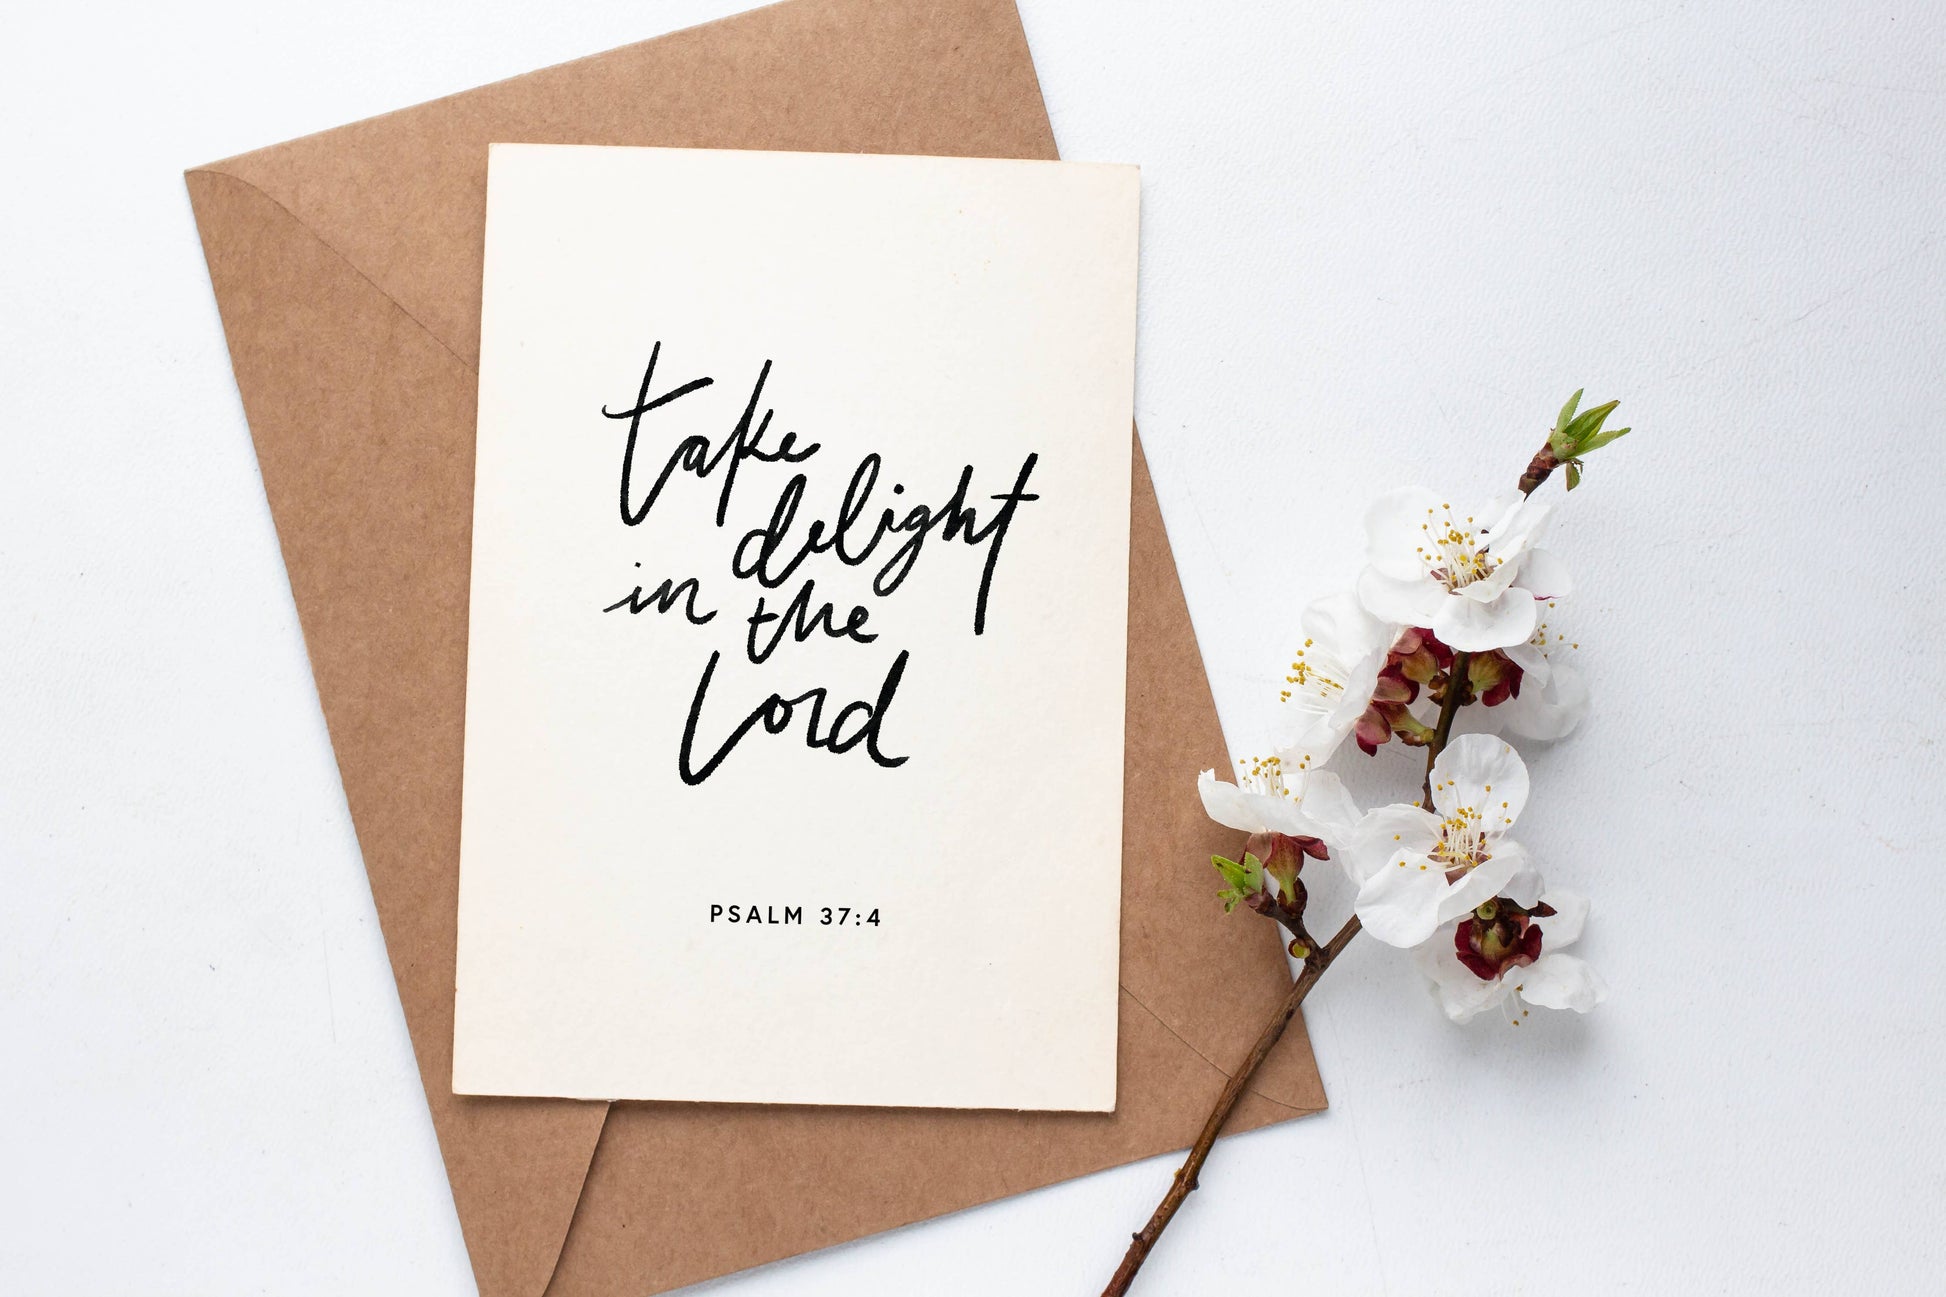 take
delight
in the
Lord
PSALM 37:4